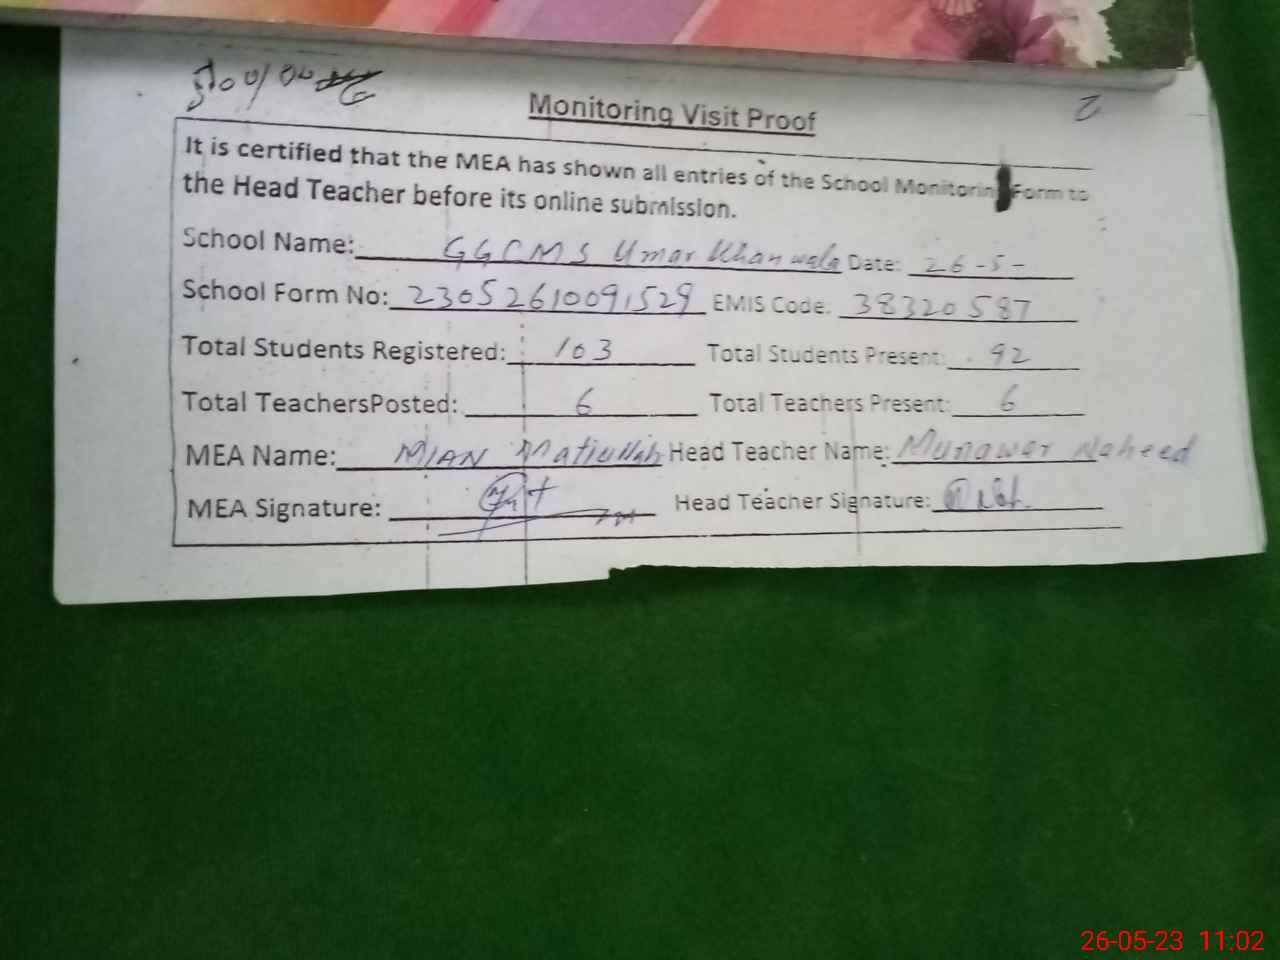 Monitoring Visit Proof
It is certified that the MEA has shown all entries of the School Monitoring Form to
the Head Teacher before its online submission.
School Name: GGCMS Umar Khanwala Date: 26-5-
School Form No: 23052610091529 EMIS Code: 38320587
Total Students Registered: 103 Total Students Present: 92
Total TeachersPosted: 6 Total Teachers Present: 6
MEA Name: MIAN Matiullah Head Teacher Name: Munawer Naheed
MEA Signature: Head Teacher Signature:
26-05-23 11:02